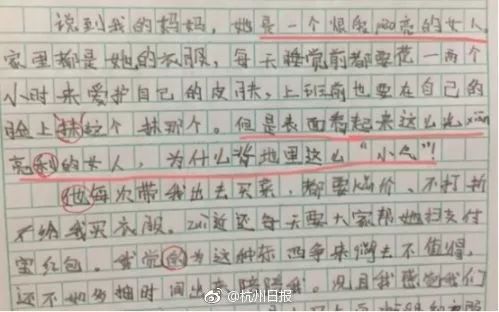 说到我的妈妈，她是一个很爱漂亮的女人
家里都是她的衣服，每天睡觉前都要花一两个
小时来爱护自己的皮肤，上班前也要在自己的
脸上抹这个抹那个。但是表面看起来这么光xiān
亮利的女人，为什么背地里这么“小气”！
他每次带我出去买菜，都要讲价，不打折
不给我买衣服。最近还每天要大家帮她扫支付
宝红包。我觉的为这种东西争来湖去不值得，
还不如多抽时间出来陪陪我。况且我感觉我们
@杭州日报